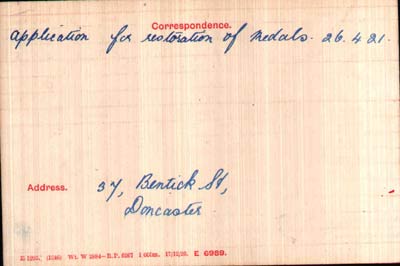 Correspondence.
application for restoration of medals. 26.4.21.
Address. 37, Bentick St,
Doncaster
Wt. W 2884— 17/12/20. E 6989.